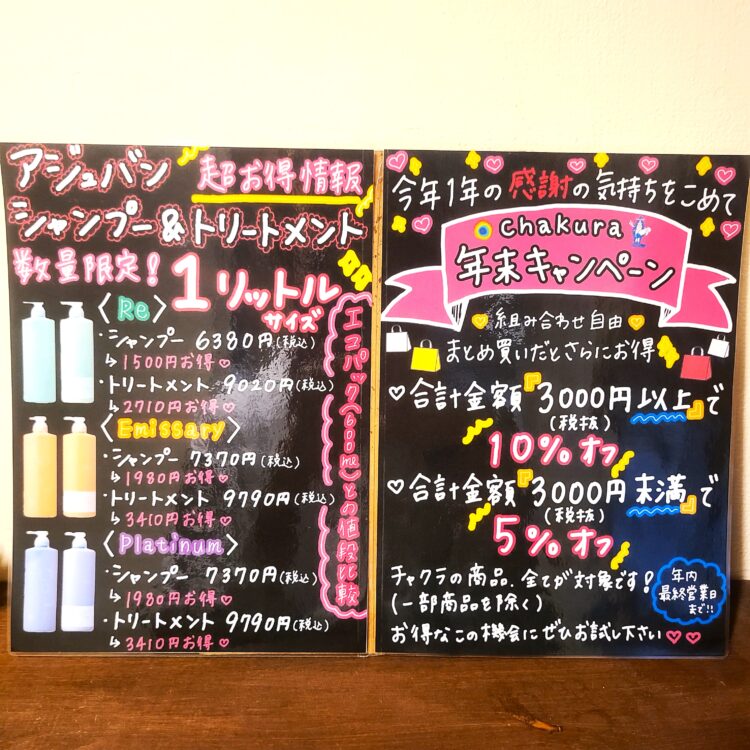 アジュバン
超お得情報
シャンプー&トリートメント
数量限定!
1リットル
サイズ
〈Re〉
・シャンプー 6380円(税込)
↳1500円お得♡
・トリートメント 9020円(税込)
↳2710円お得♡
〈Emissary〉
・シャンプー 7370円(税込)
↳1980円お得♡
・トリートメント 9790円(税込)
↳3410円お得♡
〈Platinum〉
・シャンプー 7370円(税込)
↳1980円お得♡
・トリートメント 9790円(税込)
↳3410円お得♡
エコパック(600ml)との値段比較
今年1年の感謝の気持ちをこめて
chakura
年末キャンペーン
♡組み合わせ自由♡
まとめ買いだとさらにお得
♡合計金額『3000円以上』で
(税抜)
10%オフ
♡合計金額『3000円未満』で
(税抜)
5%オフ
チャクラの商品、全てが対象です!
(一部商品を除く)
お得なこの機会にぜひお試し下さい♡♡
年内
最終営業日
まで!!